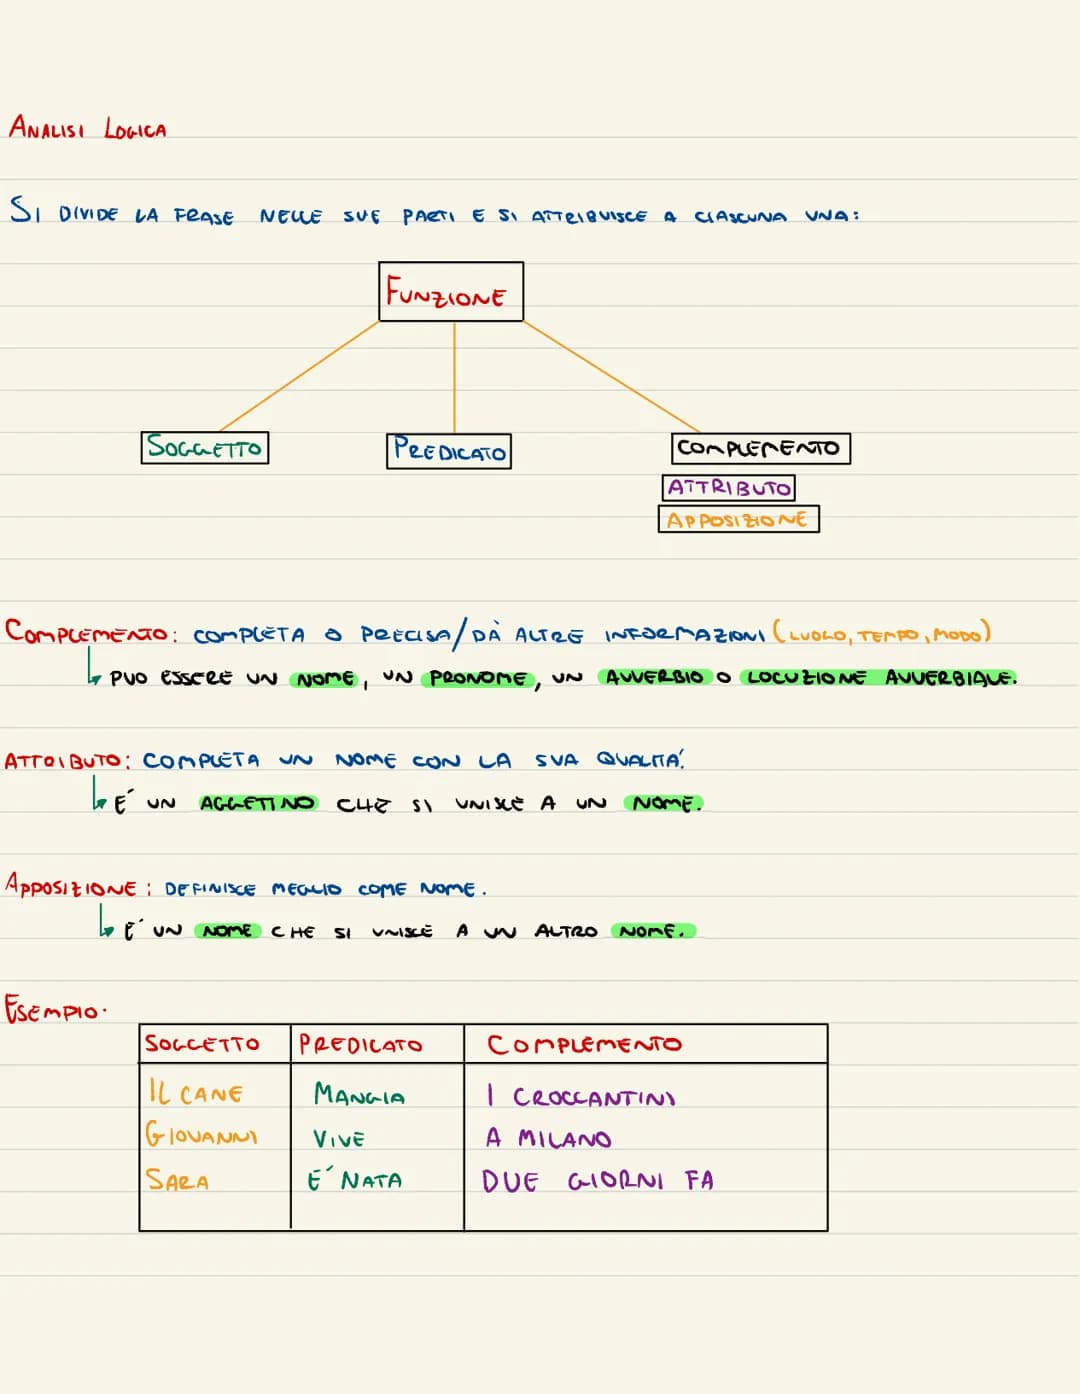 ANALISI LOGICA
SI DIVIDE LA FRASE NELLE SUE PARTI E SI ATTRIBUISCE A CIASCUNA UNA:
FUNZIONE
SOGGETTO PREDICATO COMPLEMENTO
ATTRIBUTO
APPOSIZIONE
COMPLEMENTO: COMPLETA O PRECISA/DÀ ALTRE INFORMAZIONI (LUOGO, TEMPO, MODO)
PUO ESSERE UN NOME, UN PRONOME, UN AVVERBIO O LOCUZIONE AVVERBIALE.
ATTRIBUTO: COMPLETA UN NOME CON LA SUA QUALITA'.
E' UN AGGETTIVO CHE SI UNISCE A UN NOME.
APPOSIZIONE: DEFINISCE MEGLIO COME NOME.
E' UN NOME CHE SI UNISCE A UN ALTRO NOME.
ESEMPIO.
SOGGETTO PREDICATO COMPLEMENTO
IL CANE MANGIA I CROCCANTINI
GIOVANNI VIVE A MILANO
SARA E' NATA DUE GIORNI FA